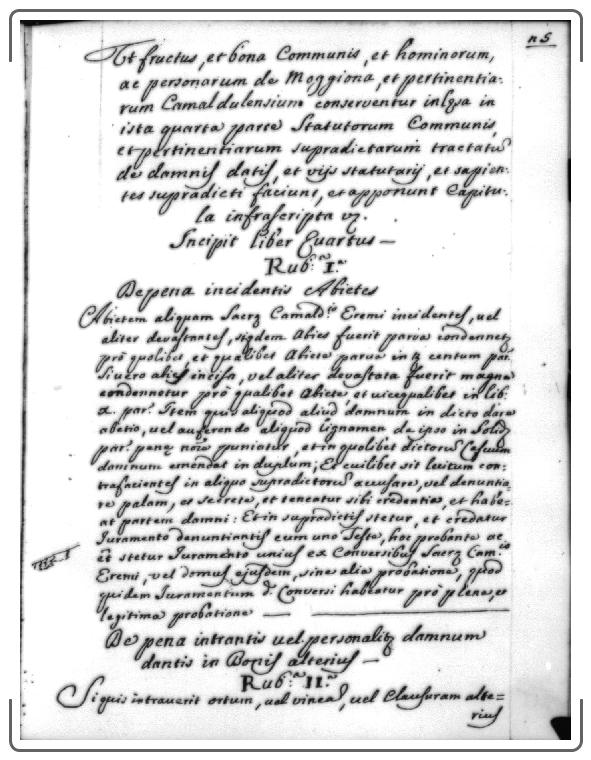 n5
Ut fructus, et bona Communis, et hominorum,
ac personarum de Moggiona, et pertinentia:
rum Camaldulensium conserventur in
ista quarta parte Statutorum Communis,
et pertinentiarum supradictarum tractatũ
de damnis datis, et vijs statutarij, et sapien:
tes supradicti faciunt, et apponunt Capitu:
la infrascripta vz.
Incipit liber Quartus —
Rub:ᶜᵃ I.ᵃ
De pena incidentis Abietes
Abietem aliquam Sacrę Camald:ⁱˢ Eremi incidentes, vel
aliter devastantes, siqdem Abies fuerit parva condennetʳ
prò quolibet, et qualibet Abiete parva in centum par.
Si vero abies incisa, vel aliter devastata fuerit magna
condennetur prò qualibet Abiete, et vice qualibet in lib:
x. par. Item quis aliquod aliud damnum in dicto
abetio, vel auferendo aliquod lignamen de ipso in Solid
par. penę puniatur, et in quolibet dictorũ Casuum
damnum emendat in duplum; Et cuilibet sit licitum con:
trafacientes in aliquo supradictorũ accusare, vel denuntia:
re palam, et secrete, et teneatur sibi credentia, et habe:
at partem damni: Et in supradictis stetur, et credatur
Iuramento denuntiantis cum uno Teste, hoc probante ac
et stetur Iuramento unius ex Conversibus Sacrę Cam:ⁱˢ
Eremi, vel domus ejusdem, sine alia probatione, quod
quidem Iuramentum d. Conversi habeatur prò plena, et
legitima probatione —
De pena intrantis vel personalitʳ damnum
dantis in Bonis alterius —
Rub:ᶜᵃ II.ᵃ
Siquis intraverit ortum, vel vineã, vel Clausuram alte=
rius